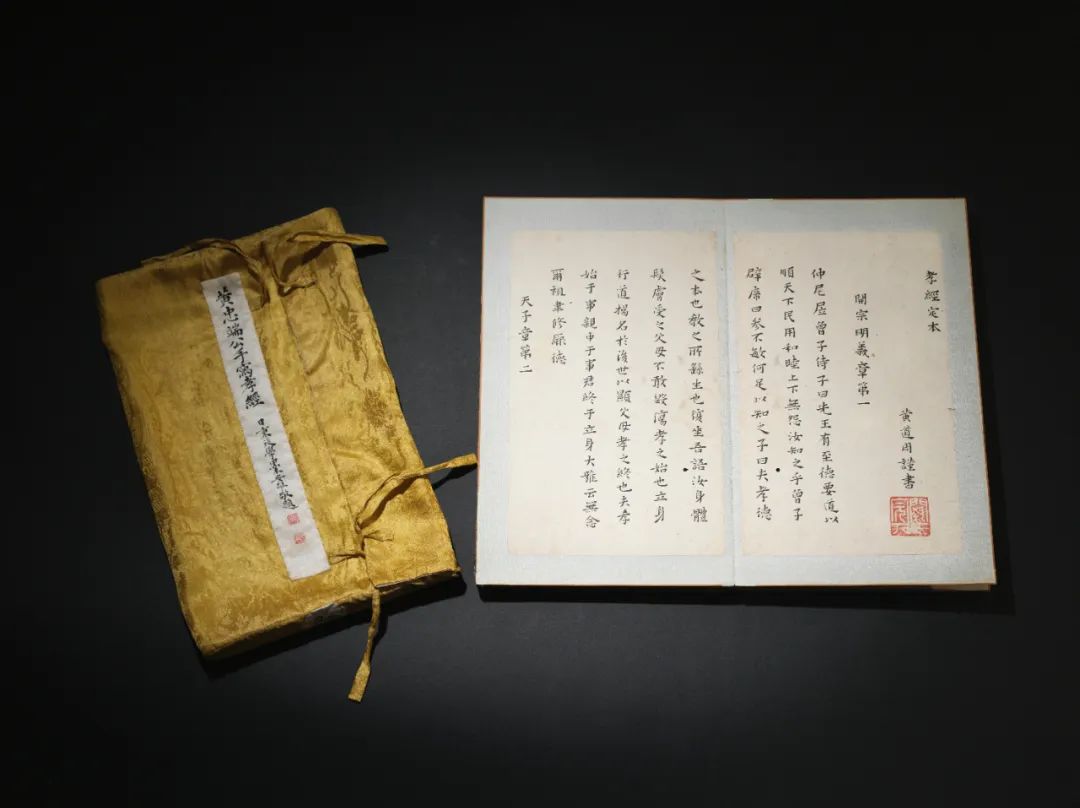 黃忠端公手寫孝經
敬題
孝經定本
黃道周謹書
開宗明義章第一
仲尼居曾子侍子曰先王有至德要道以
順天下民用和睦上下無怨汝知之乎曾子
辟席曰參不敏何足以知之子曰夫孝德
之本也教之所繇生也復坐吾語汝身體
髮膚受之父母不敢毀傷孝之始也立身
行道揚名於後世以顯父母孝之終也夫孝
始于事親中于事君終于立身大雅云無念
爾祖聿修厥德
天子章第二